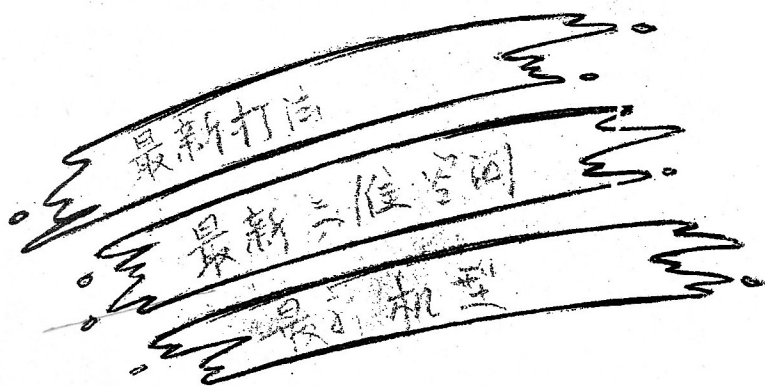 最新打法
最新三维空间
最新机型